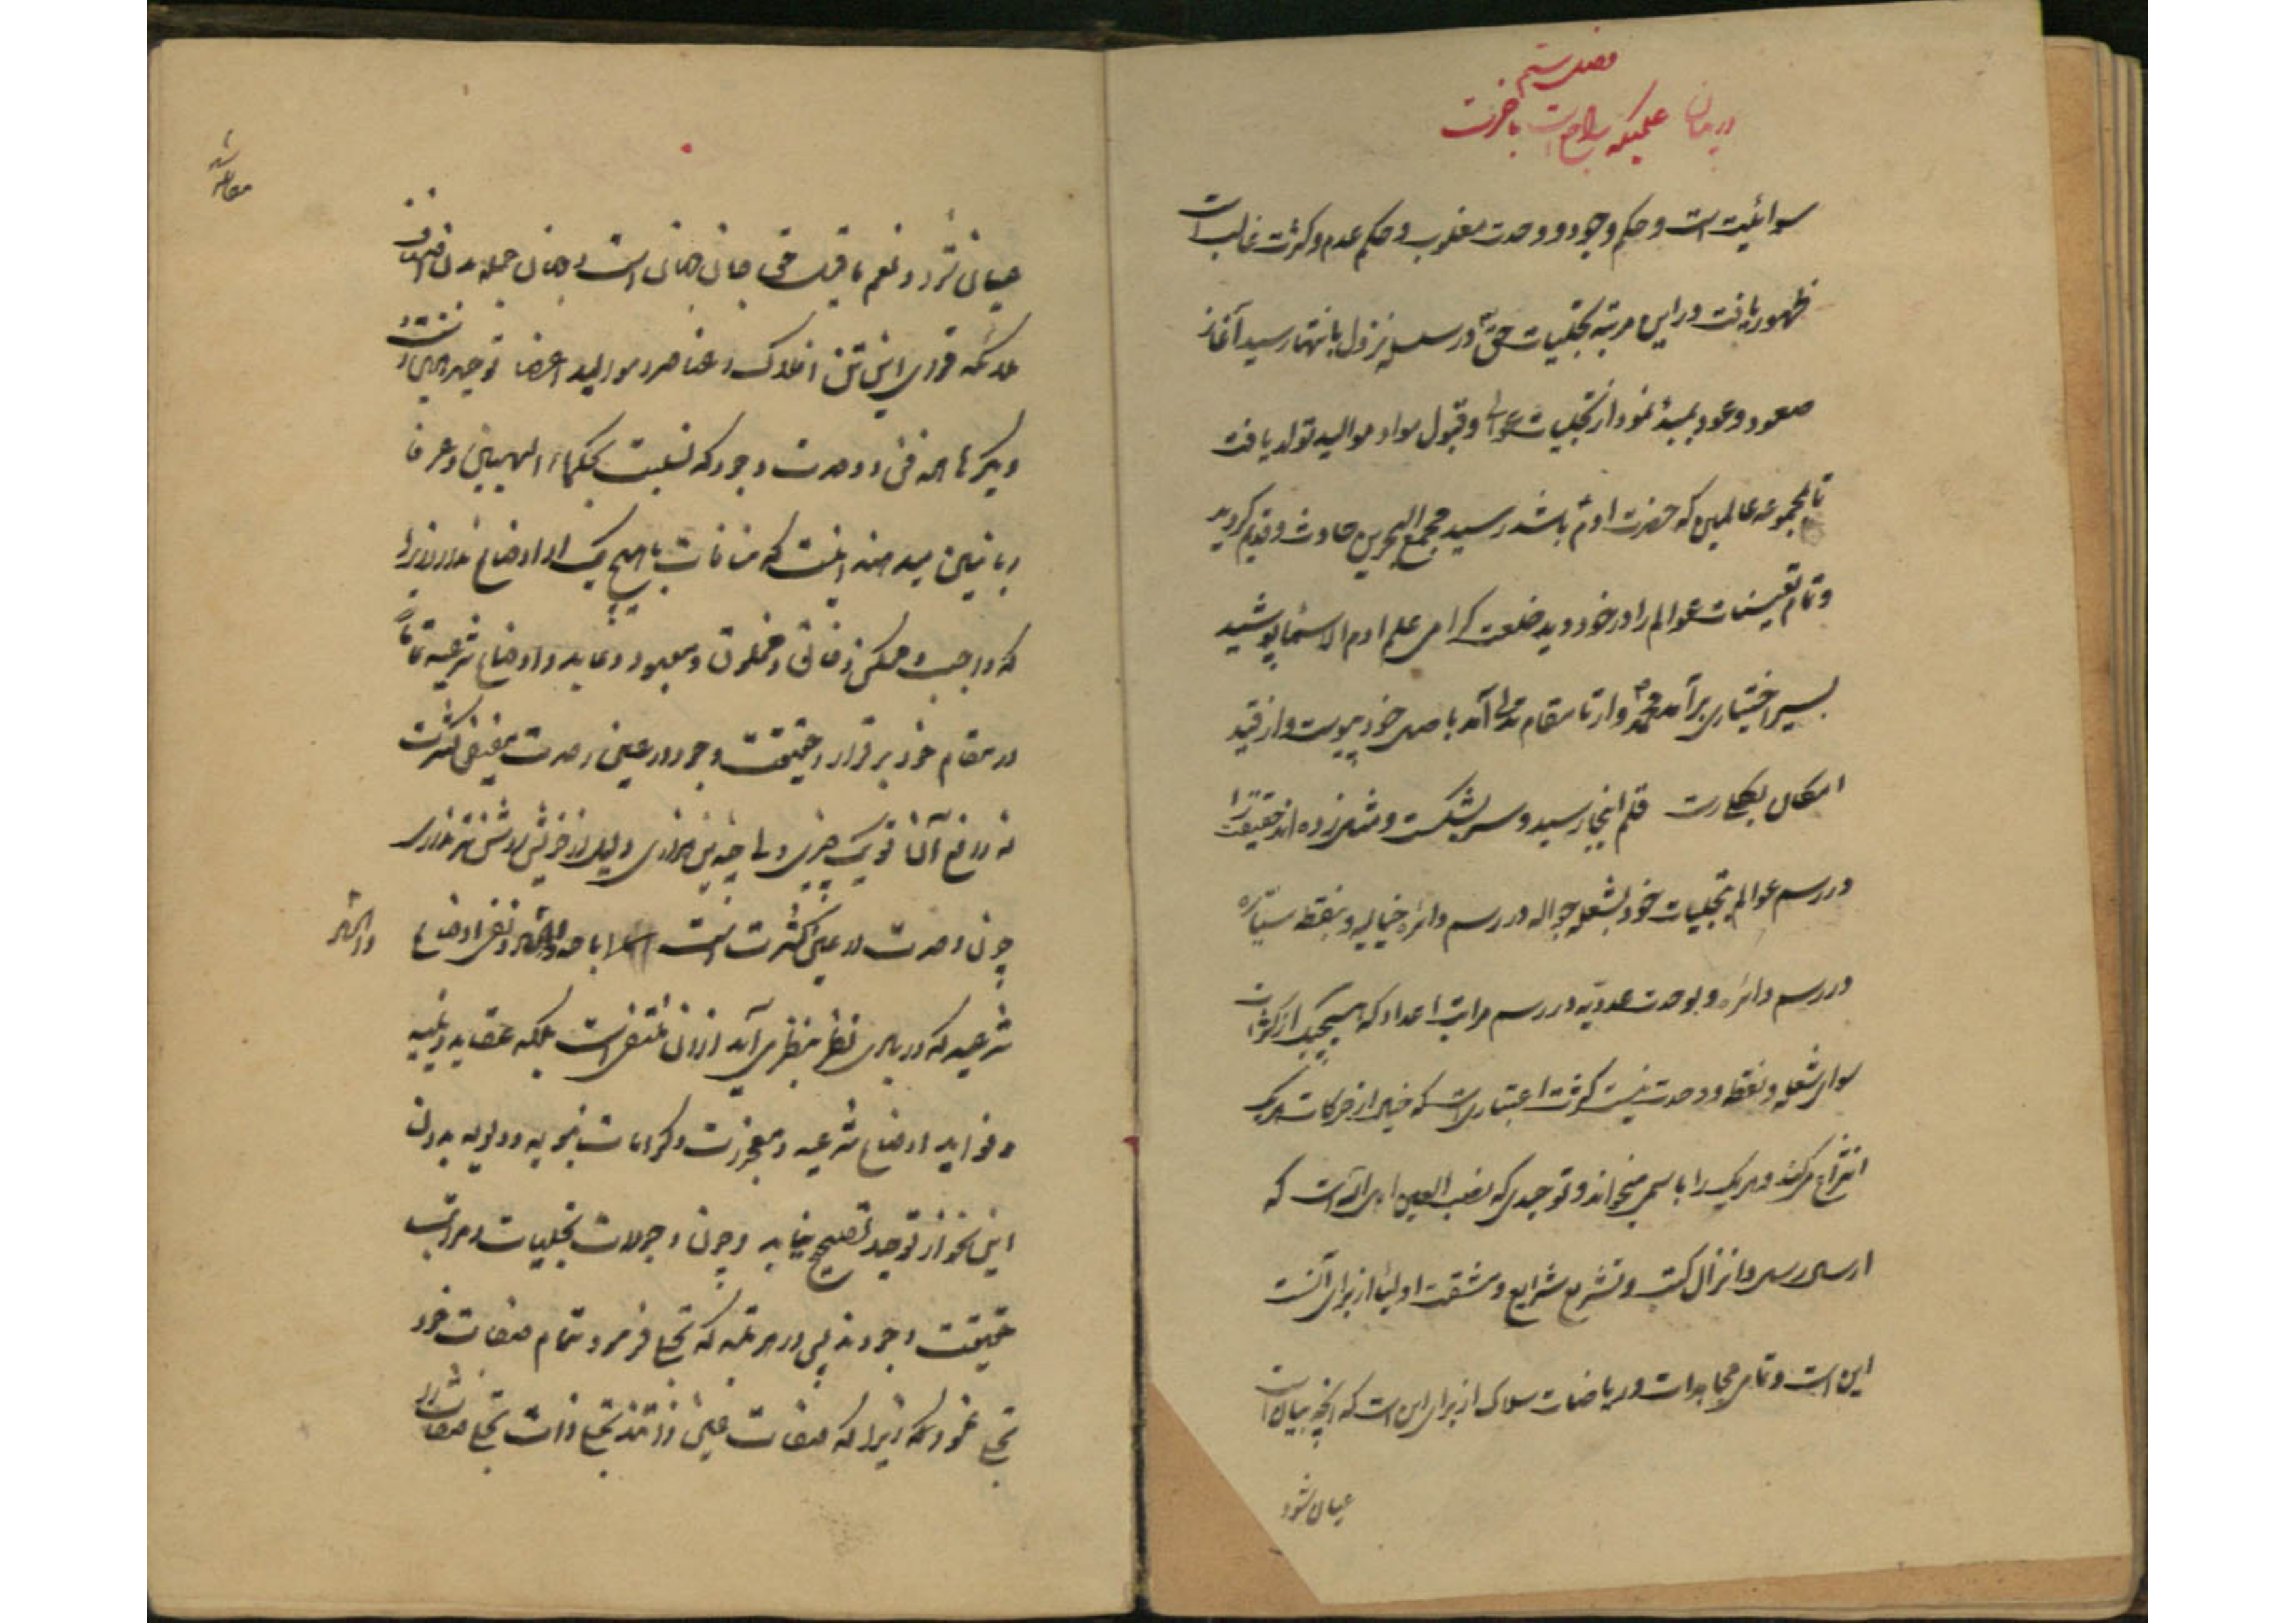 فصل ششم
در بیان علمیکه راجع است باخرت
سوائیت است و حکم وجود و وحدت مغلوب و حکم عدم و کثرت غالب است
ظهور یافت در این مرتبه تجلیات حق در سلسله نزول بانتها رسید آغاز
صعود و عود بمبدء نمود از تجلیات عوالی و قبول مواد موالید تولد یافت
تا بمجموعه عالمین که حضرت ادم باشد رسید مجمع البحرین حادث و قدیم گردید
و تمام تعینات عوالم را در خود دید خلعت کرامی علم ادم الاسماء پوشید
بسیر اختیاری برآمد محمد وار تا مقام تدلی آمد باصل خود پیوست و از قید
امکان بکلی رست قلم اینجا رسید و سر بشکست و مثل زده اند حقیقت را
در رسم عوالم بتجلیات خود بشعله جواله در رسم دائره خیالیه و بنقطه سیاره
در رسم دائره و بوحدت عددیه در رسم مراتب اعداد که هیچیک از کثرات
سوای شعله و نقطه و وحدت نیست کثرت اعتباری است که خیال از حرکات هریک
انتزاع میکند و هریک را باسمی میخواند و توحیدی که نصب العین اهل الله است که
ارسال رسل و انزال کتب و تشریع شرایع و مشقت اولیا از برای آنست
این است و تمامی مجاهدات و ریاضات سلاک از برای این است که آنچه بیان است
عیان شود
مقابله شد
عیان شود و نعم ما قیل حق جان جهان است و جهان جمله بدن اصناف
ملائکه قوای این تن افلاک و عناصر و موالید اعضا توحید همین است و
دیگرها همه فن و وحدت وجود که نسبت بحکماء الهیین و عرفا
ربانیین میدهند اینست که منافات با هیچ یک از اوضاع ندارد زیرا
که واجب و ممکن و خالق و مخلوق و معبود و عابد و اوضاع شرعیه تماماً
در مقام خود برقرار و حقیقت وجود در عین وحدت مقتضی کثرت
چون وحدت در عین کثرت است اباحه و نفی اوضاع
والحاد
شرعیه که در بادی نظر بنظر می آید از آن منتفی است بلکه عقاید دینیه
و فواید اوضاع شرعیه و معجزات و کرامات نبویه و ولویه بدون
این نحو از توحید تصحیح نیابد و چون وجودات تجلیات و مراتب
حقیقت وجودند پس در هر مرتبه که تجلی فرمود بتمام صفات خود
تجلی نمود بلکه زیرا که صفات عین ذاتند تجلی ذات تجلی صفات